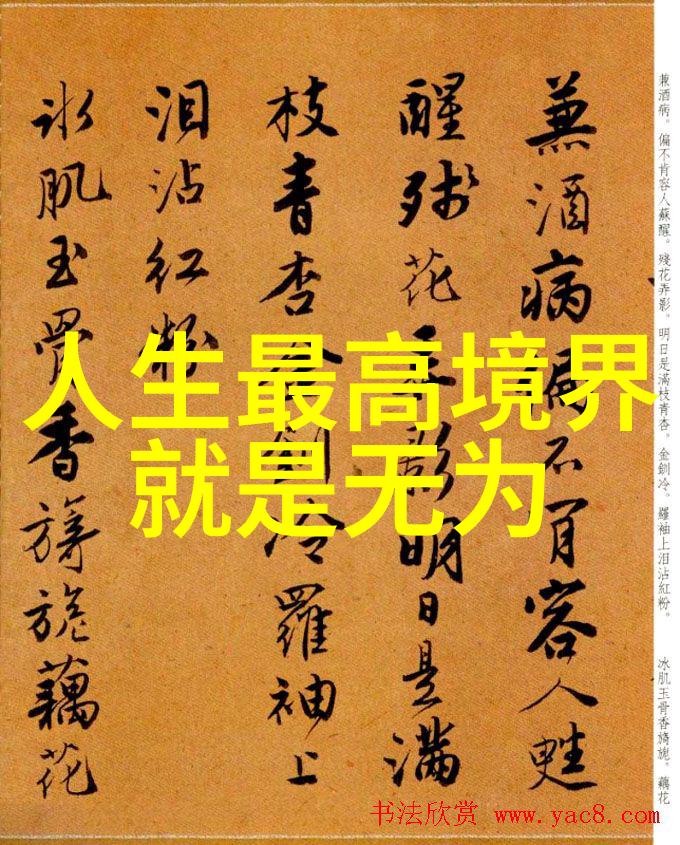 兼酒病偏不肯容人甦
醒殘花弄影明日是滿
枝青杏金釧冷羅袖上
泪沾红粉
冰肌玉骨香旖旎藕花
人生最高境界
就是无为
兼酒病。偏不肯容人蘇醒。殘花弄影。明日是滿枝青杏。金釧冷。羅袖上泪沾紅粉。
冰肌玉骨香旖旎。藕花
书法欣赏 www.yac8.com